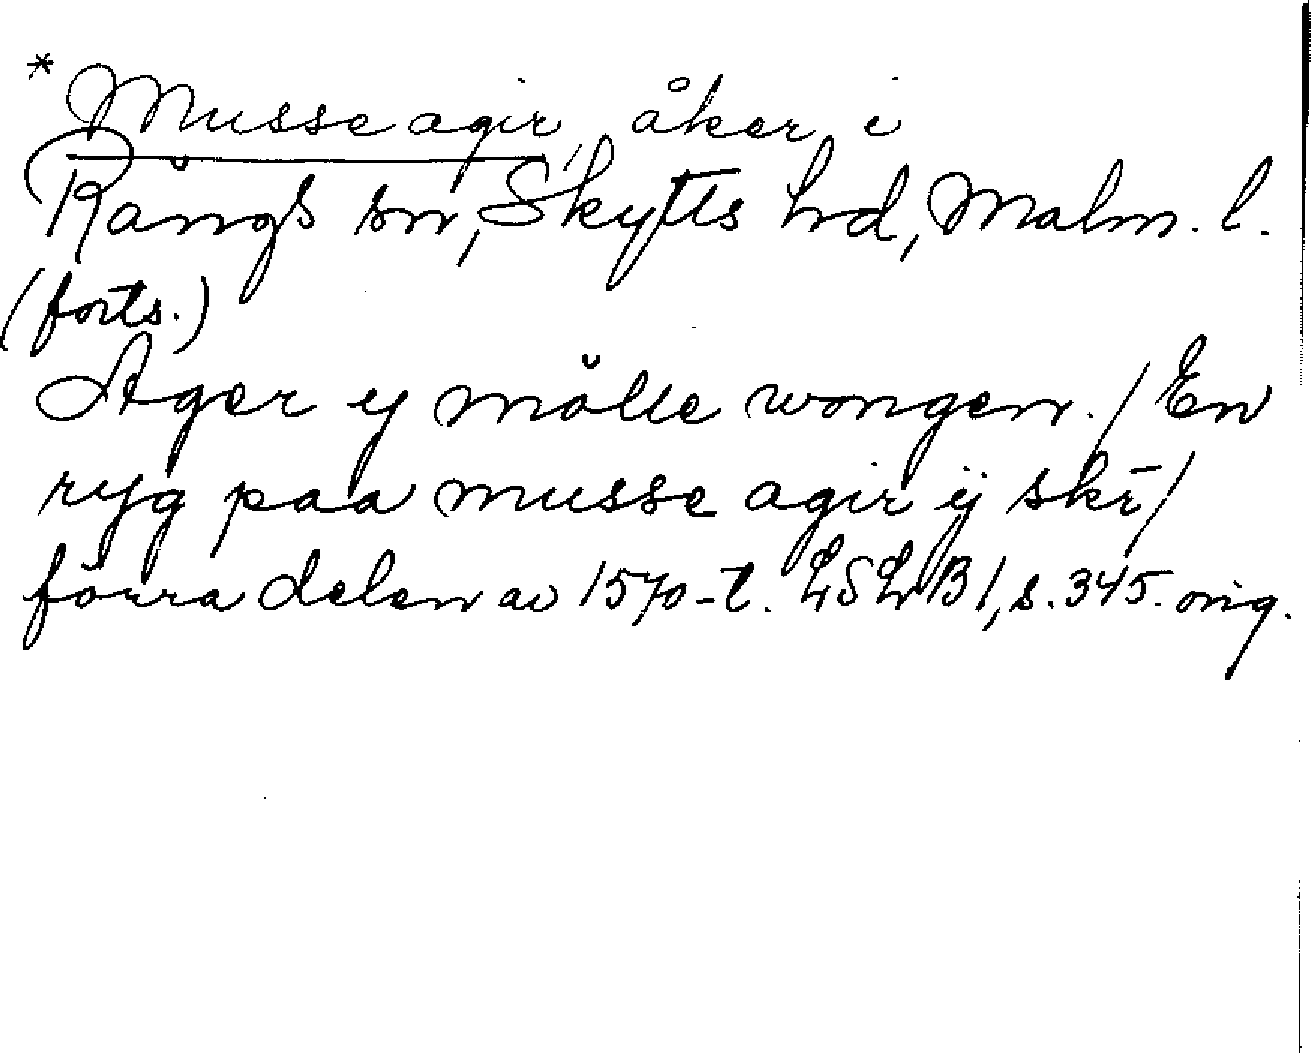 * Musse agir, åker i
Rångs sn, Skytts hd, Malm. l.
(forts.)
Ager y mölle wongen. / En
ryg paa musse agir ij skr̄ /
förra delen av 1570-t. LSLB 1, s. 345. orig.